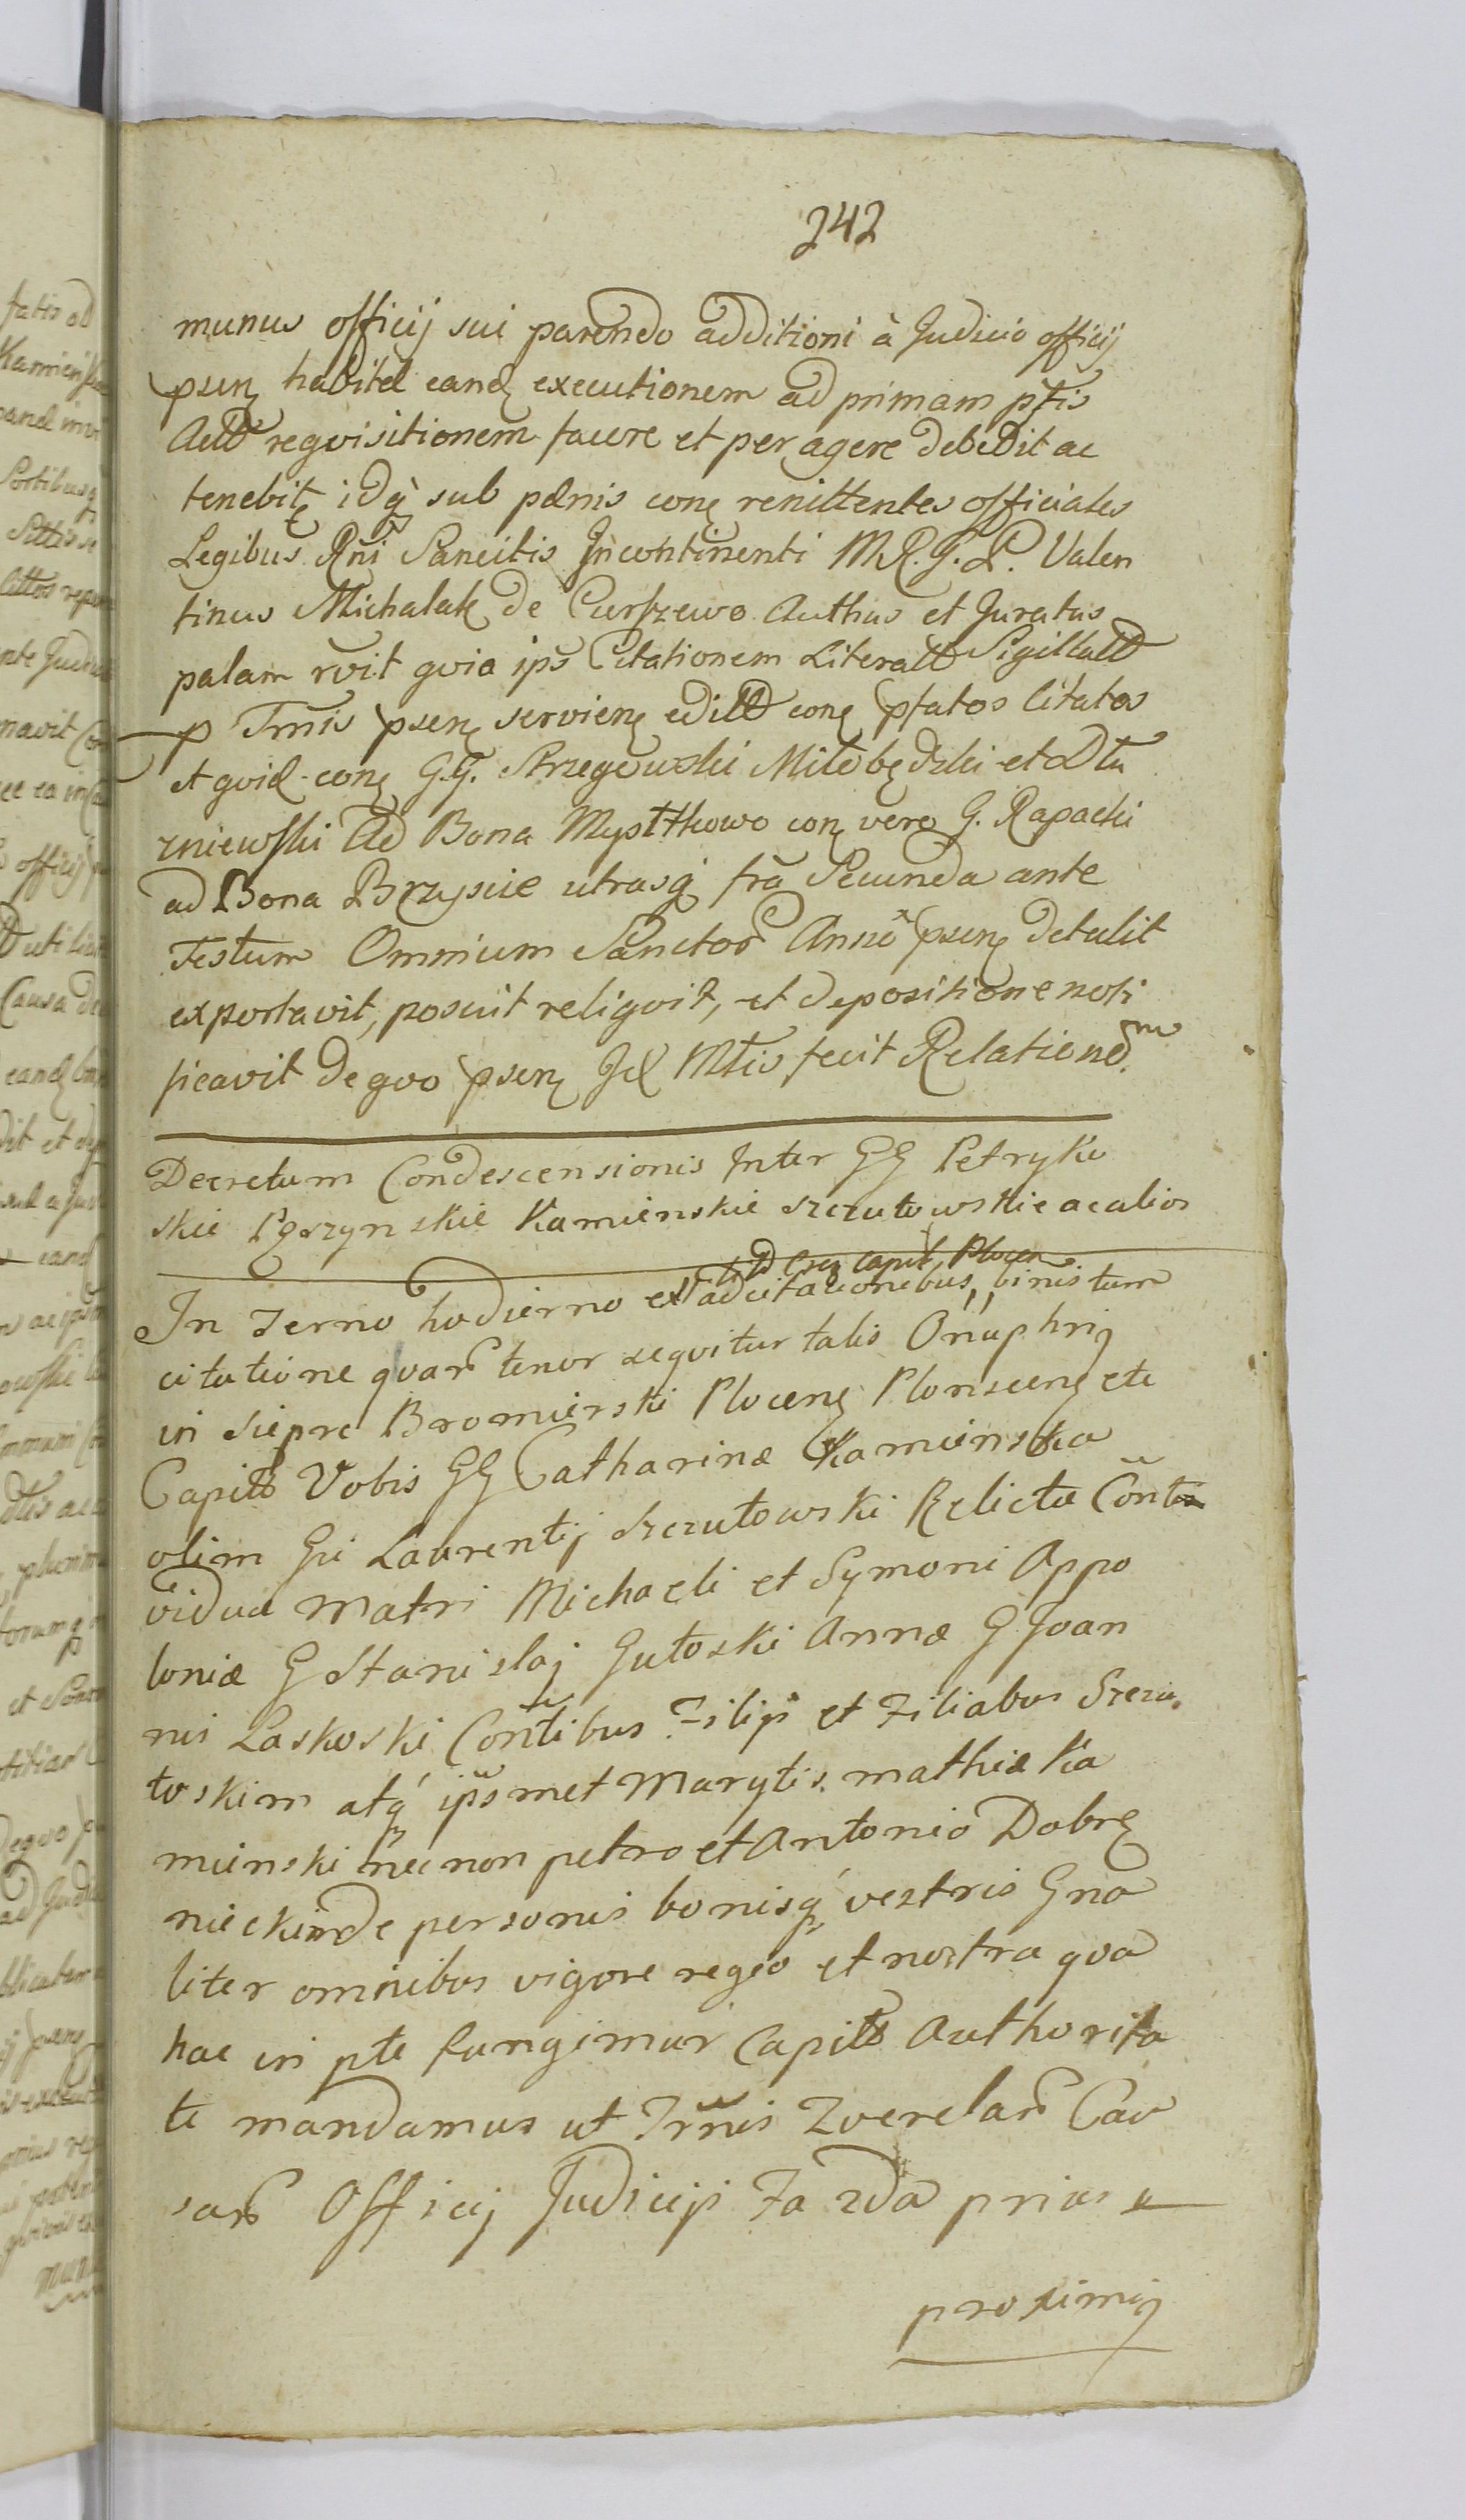 242
munus officij sui parendo additioni à Judicio officij
psenz habitæ eandz executionem ad primam ptis
Actæ requisitionem facere et peragere debebit ac
tenebitz idq sub pænis conz renittentes officiales
Legibus Rni Sancitis Incontinenti M.R.G.P. Valen
tinus Michalak de Curszewo Authus et Juratus
palam rvit quia ips Citationem Literatt Sigillatt
p Tmis psenz servienz editt conz pfatos Citatos
et quid conz G.G. Strzegowski Miłobędzki et Dłu
zniewski Ad Bona Mysttkowo conz vero G. Rapacki
ad Bona Brzyscie utrasq fra Secunda ante
Festum Omnium Sanctor Anno psenz detulit
exportavit, posuit reliquit, et depositione noti
ficavit de quo psenz Id Mtis fecit Relationem
Decretum Condescensionis Inter GG Petryko
skie Pęszynskie Kamienskie Szczutowskie ac alios
In Terno hodierno ex adcitationibus, binis tum
citatione quar tenor sequitur talis Onuphrig
in Siepre Bromierski Plocenz Plonscenz etc
Capits Vobis GG Catharinæ Kamienska
olim Gri Laurentij Szczutowski Relicta Conti
vidua Matri Michaeli et Symoni Appo
loniæ G Stanislaj Gutoski Annæ G Joan
nis Laskoski Contibus Filijs et Filiabus Szczu
toskim atq ipsmet Marytis Mathiæ Ka
mienski nec non petro et Antonio Dobrz
nieckim de personis bonisq vestris Gna
liter omnibus vigore regeo et nostra qua
hac in pte fungimur Capits Authorita
te mandamus ut Trnis Querelar Cau
sar Officij Judiciji Fa 2da prius
proximig